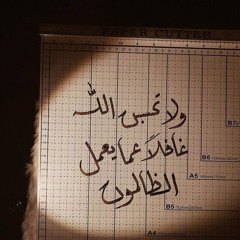 PAPER CUTTER
ولا تحسبن الله
غافلاً عما يعمل
الظالمون
B7
B6
A5
B5
A4